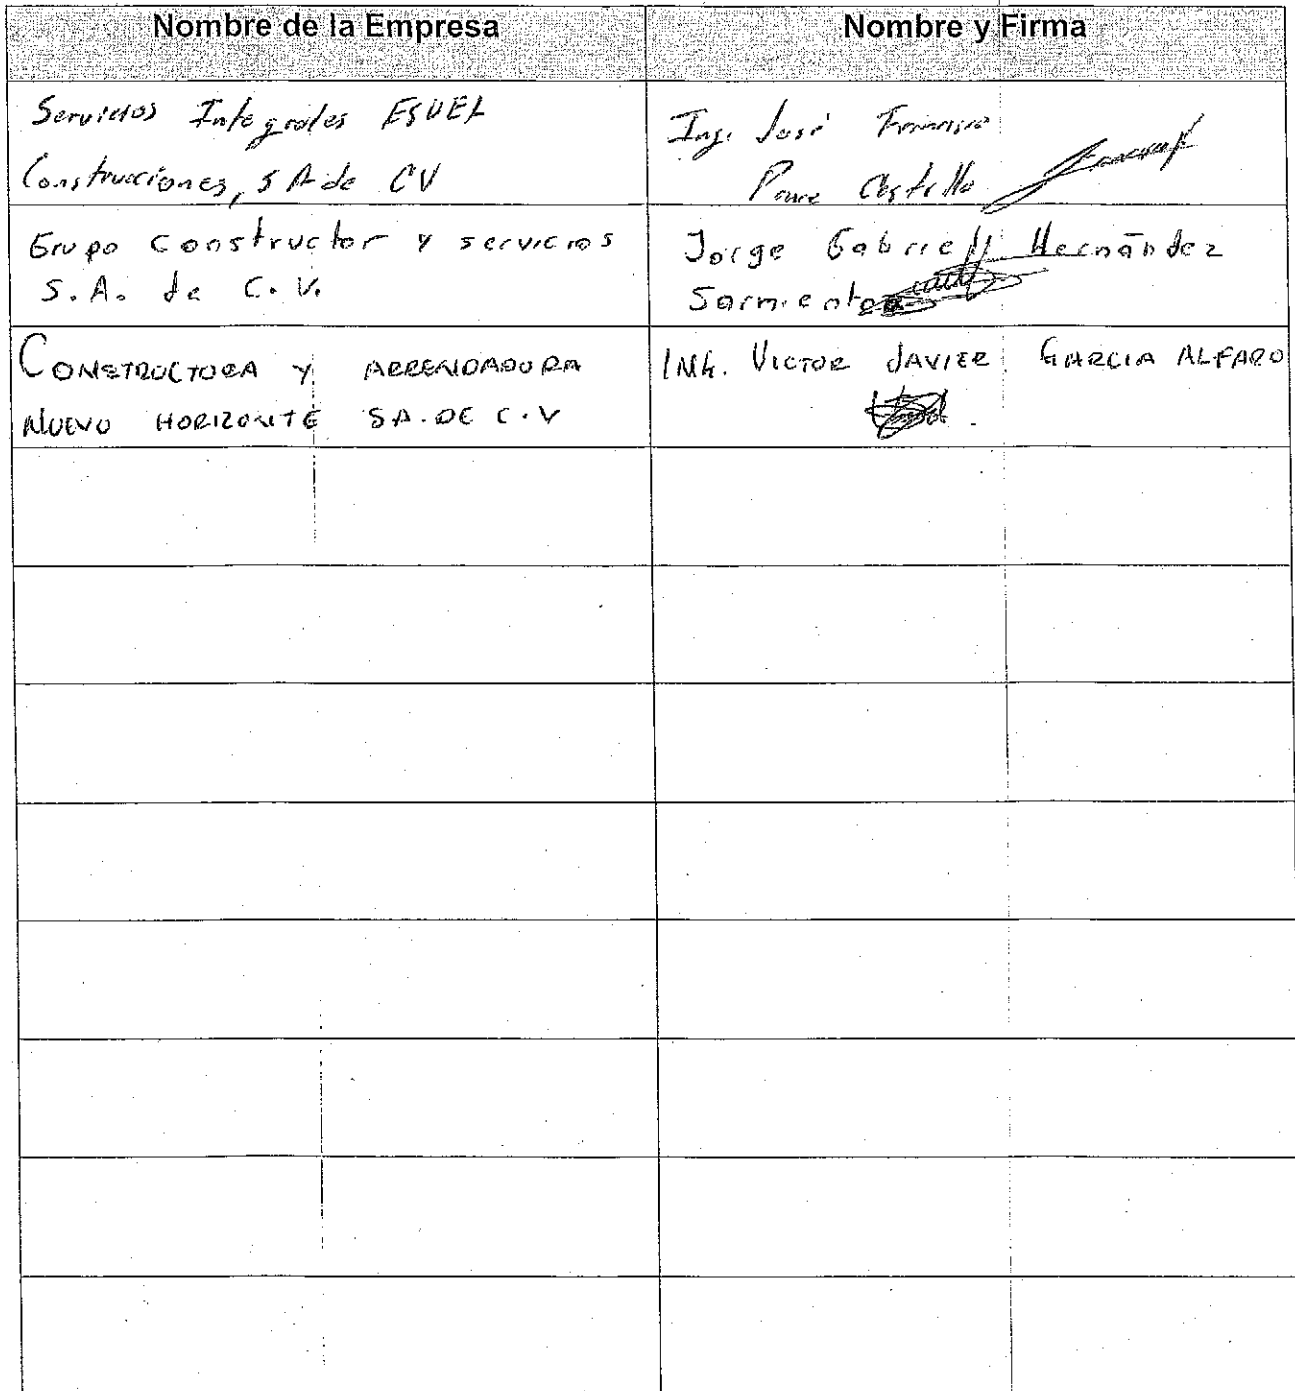 Nombre de la Empresa
Nombre y Firma
Servicios Integrales ESVEL
Construcciones, S A de CV
Ing. José Francisco
Ponce Castillo
Grupo constructor y servicios
S.A. de C.V.
Jorge Gabriel Hernández
Sarmiento
CONSTRUCTORA Y ARRENDADORA
NUEVO HORIZONTE SA. DE C.V
ING. VICTOR JAVIER GARCIA ALFARO